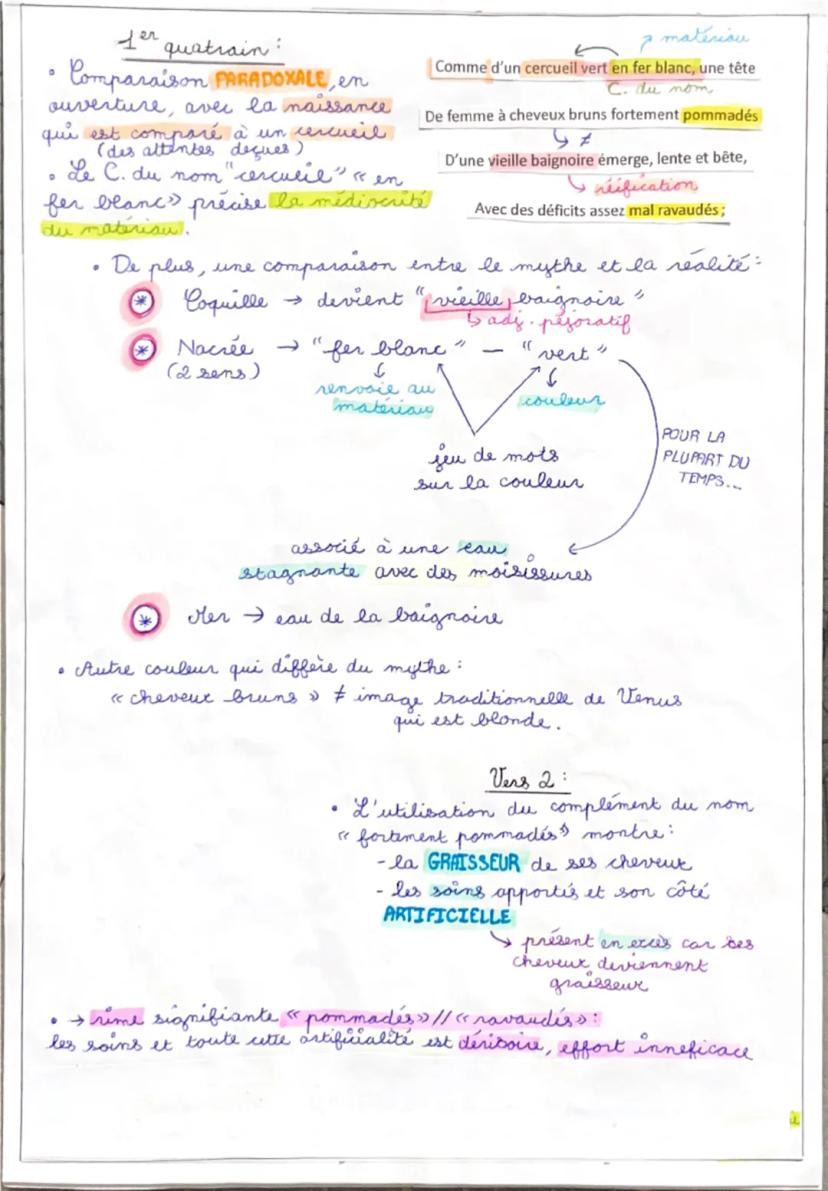 1er quatrain :
• Comparaison PARADOXALE, en
ouverture, avec la naissance
qui est comparé à un cercueil
(des attentes deçues)
• Le C. du nom "cercueil" « en
fer blanc» précise la médiocrité
du matériau.
matériau
Comme d'un cercueil vert en fer blanc, une tête
C. du nom
De femme à cheveux bruns fortement pommadés
≠
D'une vieille baignoire émerge, lente et bête,
réification
Avec des déficits assez mal ravaudés ;
• De plus, une comparaison entre le mythe et la réalité :
* Coquille → devient "vieille baignoire"
↳ adj. péjoratif
* Nacrée → "fer blanc" — "vert"
(2 sens)
renvoie au
matériau
couleur
jeu de mots
sur la couleur
POUR LA
PLUPART DU
TEMPS...
associé à une eau
stagnante avec des moisissures
* Mer → eau de la baignoire
• Autre couleur qui diffère du mythe :
« cheveux bruns » ≠ image traditionnelle de Venus
qui est blonde.
Vers 2 :
• L'utilisation du complément du nom
« fortement pommadés» montre :
- la GRAISSEUR de ses cheveux
- les soins apportés et son côté
ARTIFICIELLE
↳ présent en excès car ses
cheveux deviennent
graisseux
• → rime signifiante « pommadés» // « ravaudés» :
les soins et toute cette artificialité est dérisoire, effort inneficace